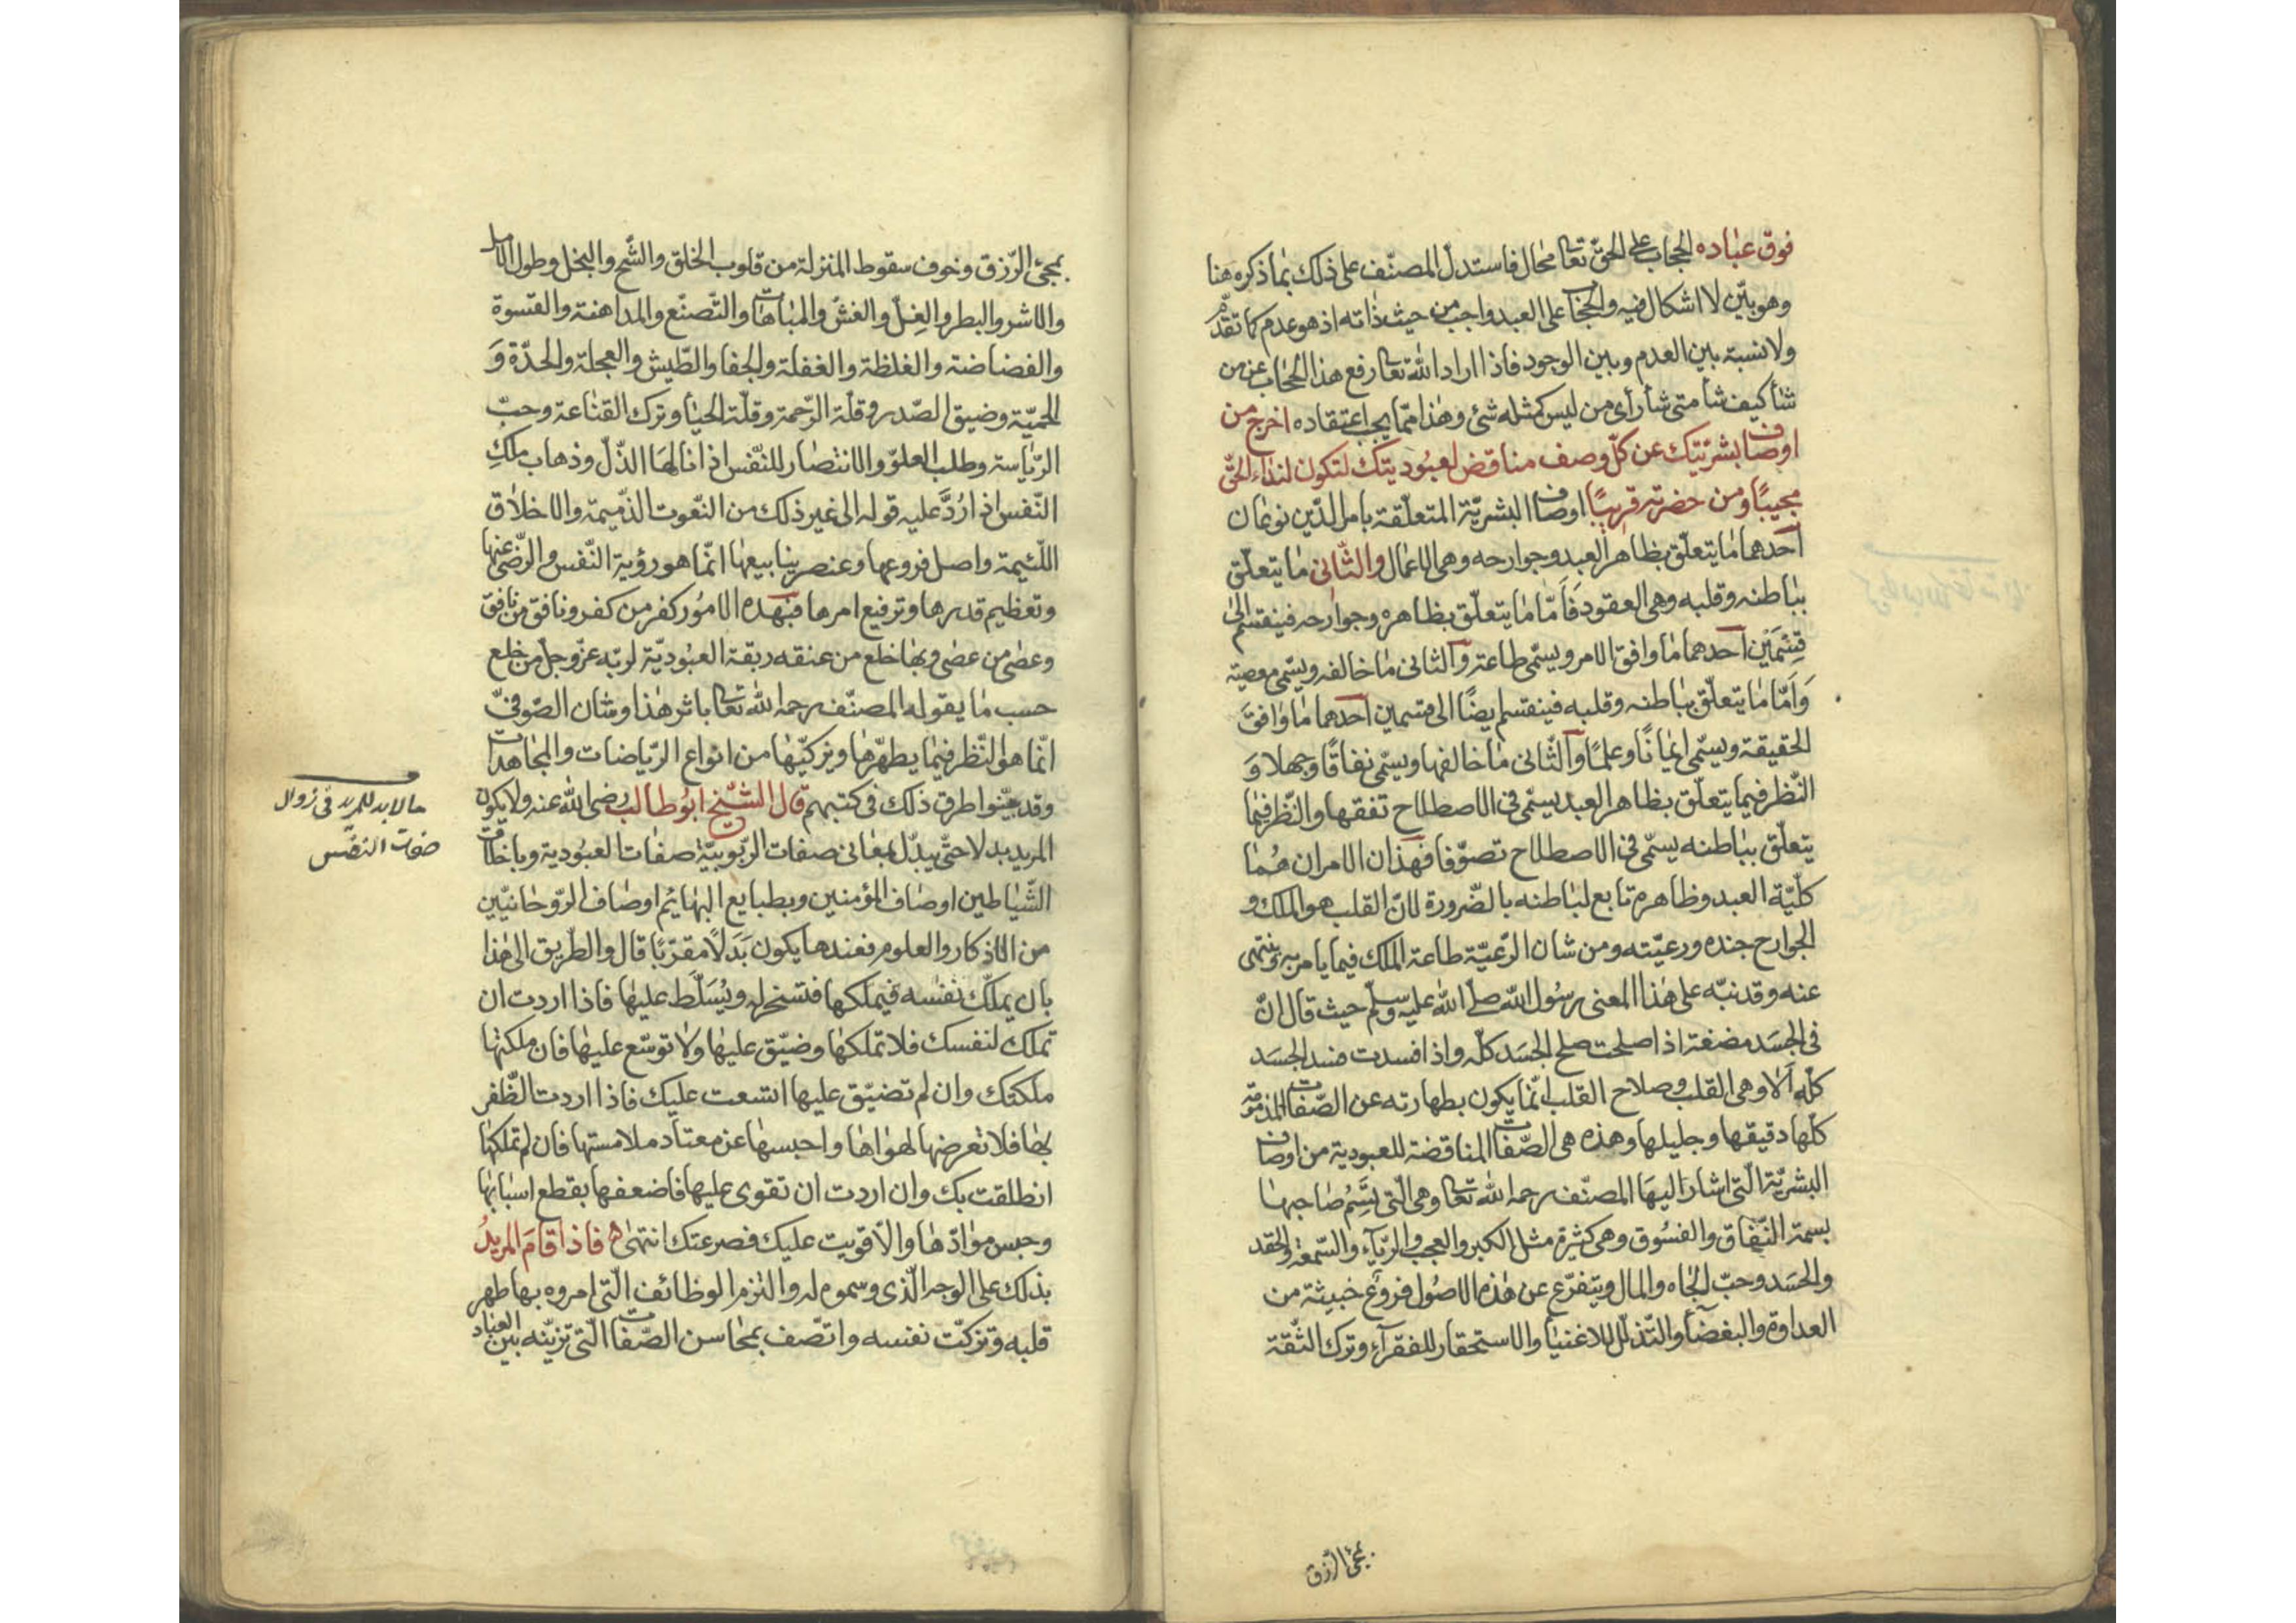 فوق عباده الحجاب على الحق تعا محال فاستدل المصنّف على ذلك بما ذكره هنا
وهو بيّن لا اشكال فيه والحجاب على العبد واجب من حيث ذاته اذ هو عدم كما تقدّم
ولا نسبة بين العدم وبين الوجود فاذا اراد الله تعا رفع هذا الحجاب عن من
شأ كيف شأ متى شأ رأى من ليس كمثله شئ وهذا ممّا يجب اعتقاده اخرج من
اوصاف بشريّتك عن كلّ وصف مناقض لعبوديتك لتكون لنداء الحقّ
مجيبًا ومن حضرته قريبًا اوصاف البشريّة المتعلّقة بامر الدّين نوعان
احدهما ما يتعلّق بظاهر العبد وجوارحه وهى الاعمال والثّانى ما يتعلّق
بباطنه وقلبه وهى العقود فَاَمّا ما يتعلّق بظاهره وجوارحه فينقسم الى
قِسْمَيْن احدهما ما وافق الامر ويسمّى طاعة والثانى ما خالفه ويسمّى معصية
وَاَمّا ما يتعلّق بباطنه وقلبه فينقسم ايضًا الى قسمين احدهما ما وافق
الحقيقة ويسمّى ايمانًا وعلمًا والثّانى ما خالفها ويسمّى نفاقًا وجهلا وَ
النّظر فيما يتعلّق بظاهر العبد يسمّى فى الاصطلاح تفقها والنّظر فيما
يتعلّق بباطنه يسمّى فى الاصطلاح تصوّفا فهذان الامران هُما
كلّيّة العبد وظاهره تابع لباطنه بالضّرورة لانّ القلب هو الملك و
الجوارح جنده ورعيّته ومن شان الرّعيّة طاعة الملك فيما يامر به وينتهى
عنه وقد نبّه على هذا المعنى رسُول الله صلّى الله عليه وسلّم حيث قال انّ
فى الجسَد مضغة اذا صلحت صلح الجسَد كلّه واذا فسدت فسد الجسَد
كلّه اَلا وهى القلب وصلاح القلب انّما يكون بطهارته عن الصّفات المذمومة
كلّها دقيقها وجليلها وهذه هى الصّفات المناقضة للعبودية من اوصاف
البشريّة الّتى اشار اليهَا المصنّف رحمه الله تعا وهى الّتى يَتَّسِمُ صَاحبها
بسمة النّفاق والفسُوق وهى كثيرة مثل الكبر والعجب والرّيآء والسّمعة والحقد
والحسَد وحبّ الجَاه والمال ويتفرّع عن هٰذه الاصُول فروع خبيثة من
العداوة والبغضآ والتّذلّل للاغنيا والاستحقار للفقرآء وترك الثّقة
بمجئ الرّزق
بمجئ الرّزق وخوف سقوط المنزلة من قلوب الخلق والشّح والبخل وطول الامل
والاشر والبطر والغِلّ والغشّ والمباهات والتّصنّع والمداهنة والقسوة
والفضاضة والغلظة والغفلة والجفا والطّيش والعجلة والحدّة وَ
الحميّة وضيق الصّدر وقلّة الرّحمة وقلّة الحيا وترك القناعة وحبّ
الرّياسة وطلب العلوّ والانتصار للنّفس اذا نالهَا الذّلّ وذهاب ملكِ
النّفس اذا رُدَّ عليه قوله الى غير ذلك من النّعوت الذّميمة والاخلاق
اللّئيمة واصل فروعها وعنصر ينابيعها انّما هو رؤية النّفس والرّضى عنها
وتعظيم قدرها وترفيع امرها فبهذه الامُور كفر من كفر ونافق من نافق
وعصى من عصى وبها خلع من عنقه ربقة العبُوديّة لربّه عزّ وجلّ من خلع
حسب ما يقوله المصنّف رحمه الله تعا باثر هٰذا وشان الصّوفىّ
انّما هو النّظر فيما يطهّرها ويزكّيها من انواع الرّياضات والمجاهدات
وقد بيّنوا طرق ذلك فى كتبهم قال الشّيخ ابُو طالب رضى الله عنه ولا يكون
المريد بدلا حتّى يبدّل بمعانى صفات الرّبوبيّة صفات العبُودية وباخلاق
الشّياطين اوصَاف المؤمنين وبطبايع البهَائم اوصَاف الرّوحَانيّين
من الاذكار والعلوم فعندها يكون بَدَلًا مقرّبًا قال والطّريق الى هذا
بان يملك نفسه فيملكها فتسخر له ويُسَلّط عليها فاذا اردت ان
تملك نفسك فلا تملكها وضيّق عليها ولا توسّع عليها فان ملكتها
ملكتك وان لم تضيّق عليها اتسعت عليك فاذا اردت الظّفر
بها فلا تعرضها لهواها واحبسها عن معتاد ملامستها فان لم تملكها
انطلقت بك وان اردت ان تقوى عليها فاضعفها بقطع اسبَابها
وحبس موادّها والّا قويت عليك فصرعتك انتهى فاذا اقام المريدُ
بذلك على الوجه الّذى وسموه له والتزم الوظائف الّتى امروه بها طهر
قلبه وتزكّت نفسه واتّصف بمحاسن الصّفات الّتى تزيّنه بين العباد
ما لا بد للمريد فى زوال
صفات النفس